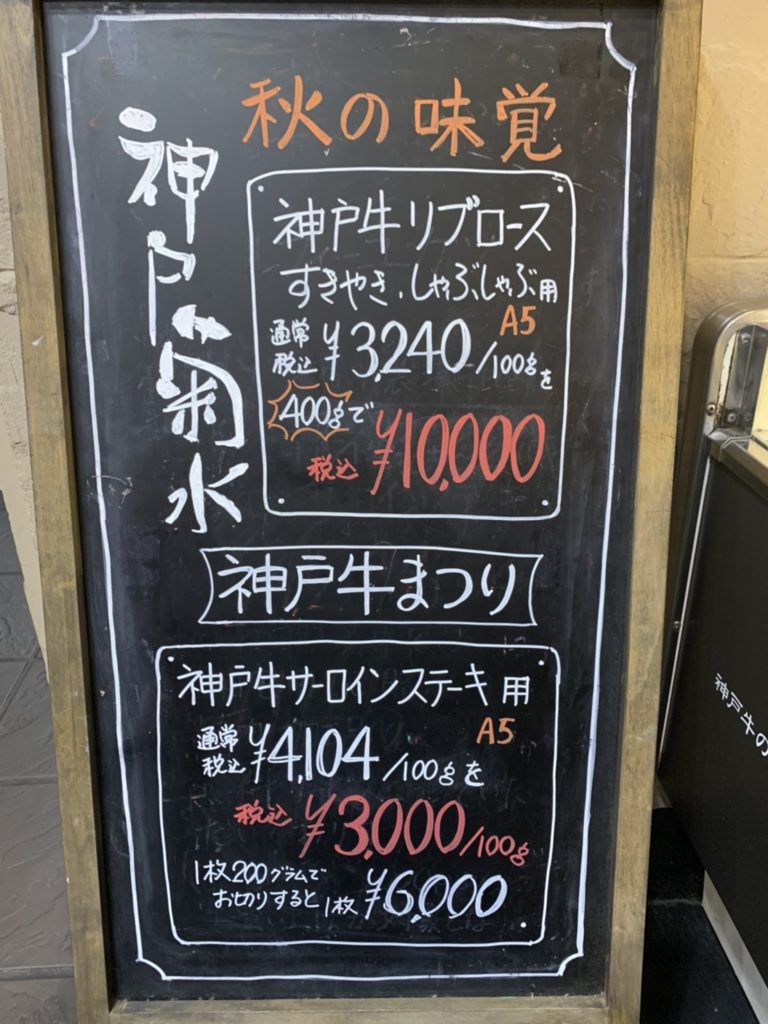 秋の味覚
神戸菊水
神戸牛リブロース
すきやき、しゃぶしゃぶ用
A5
通常
税込
¥3,240/100gを
400gで
税込 ¥10,000
神戸牛まつり
神戸牛サーロインステーキ用
A5
通常
税込
¥4,104/100gを
税込 ¥3,000/100g
1枚200グラムで
お切りすると 1枚 ¥6,000
神戸牛の